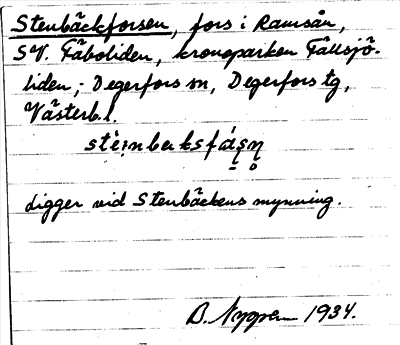 Stenbäckforsen, fors i Ramsån,
S.V. Fäboliden, kronoparken Fällsjö-
liden; Degerfors sn, Degerfors tg,
Västerb. l.
ligger vid Stenbäckens mynning.
B. Nygren 1934.